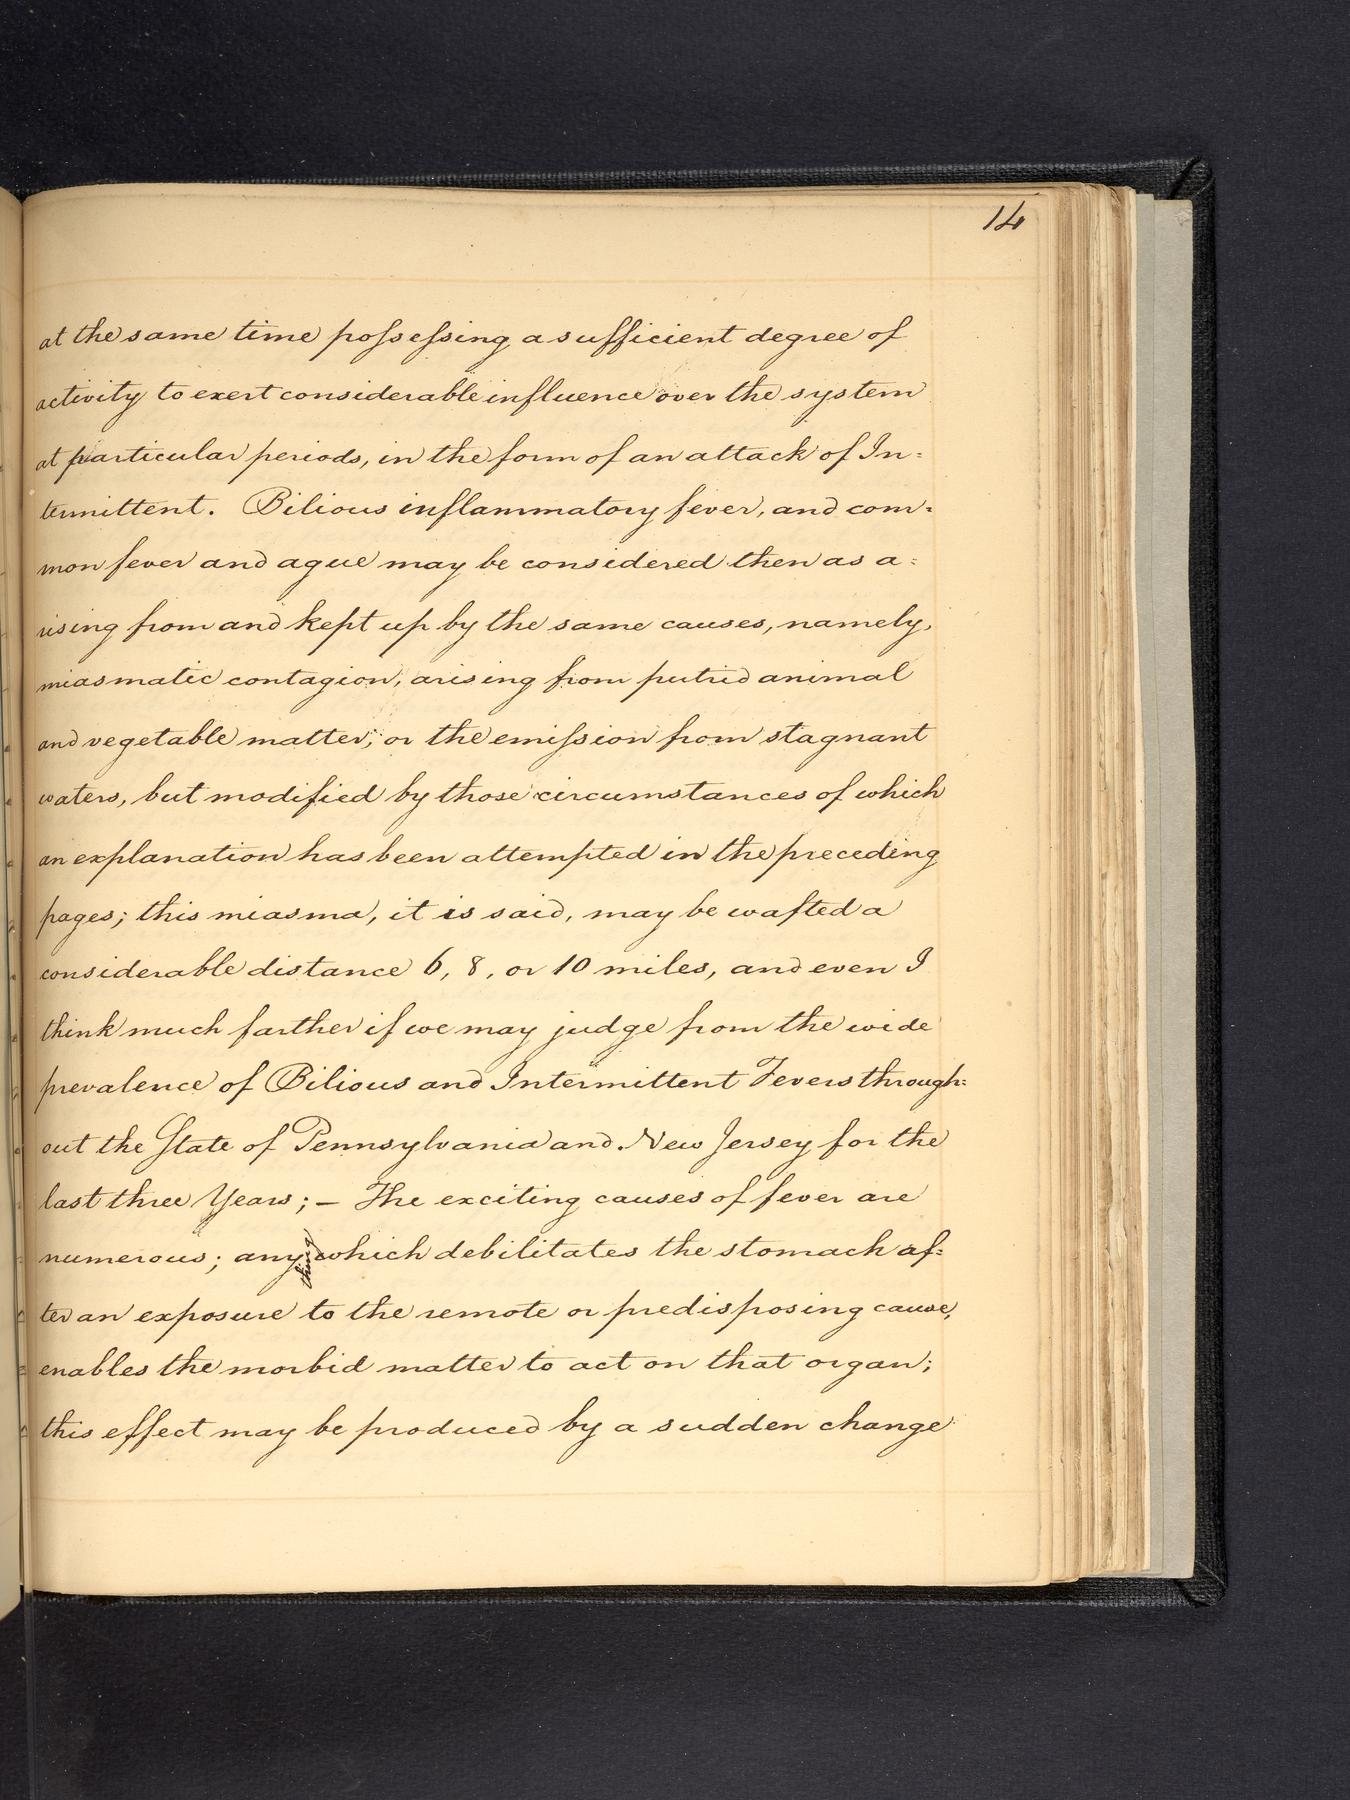 14
at the same time possessing a sufficient degree of
activity to exert considerable influence over the system
at particular periods, in the form of an attack of In=
termittent. Bilious inflammatory fever, and com=
mon fever and ague may be considered then as a=
rising from and kept up by the same causes, namely,
miasmatic contagion, arising from putrid animal
and vegetable matter, or the emission from stagnant
waters, but modified by those circumstances of which
an explanation has been attempted in the preceding
pages; this miasma, it is said, may be wafted a
considerable distance 6, 8, or 10 miles, and even I
think much farther if we may judge from the wide
prevalence of Bilious and Intermittent Fevers through=
out the State of Pennsylvania and New Jersey for the
last three Years; – The exciting causes of fever are
numerous; any thing which debilitates the stomach af=
ter an exposure to the remote or predisposing cause,
enables the morbid matter to act on that organ;
this effect may be produced by a sudden change